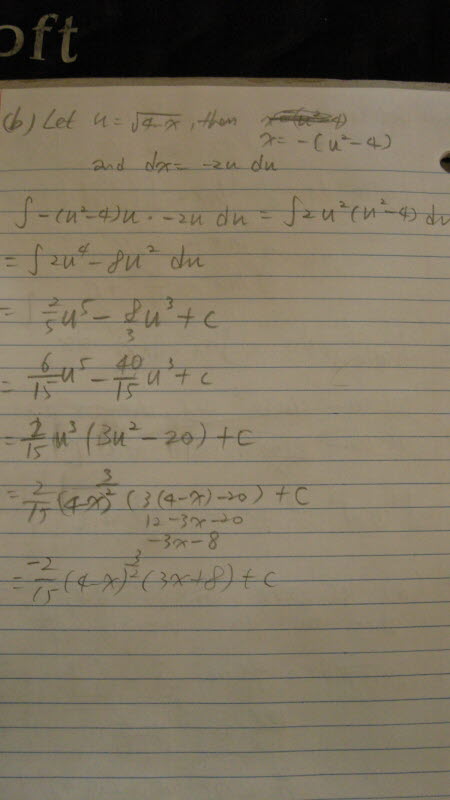 oft
(b) Let u = √4-x, then
x = -(u²-4)
and dx = -2u du
∫-(u²-4)u · -2u du = ∫2u²(u²-4) du
= ∫2u⁴ - 8u² du
= 2/5 u⁵ - 8/3 u³ + C
= 6/15 u⁵ - 40/15 u³ + C
= 2/15 u³ (3u² - 20) + C
= 2/15 (4-x)^3/2 (3(4-x)-20) + C
12-3x-20
-3x-8
= -2/15 (4-x)^3/2 (3x+8) + C